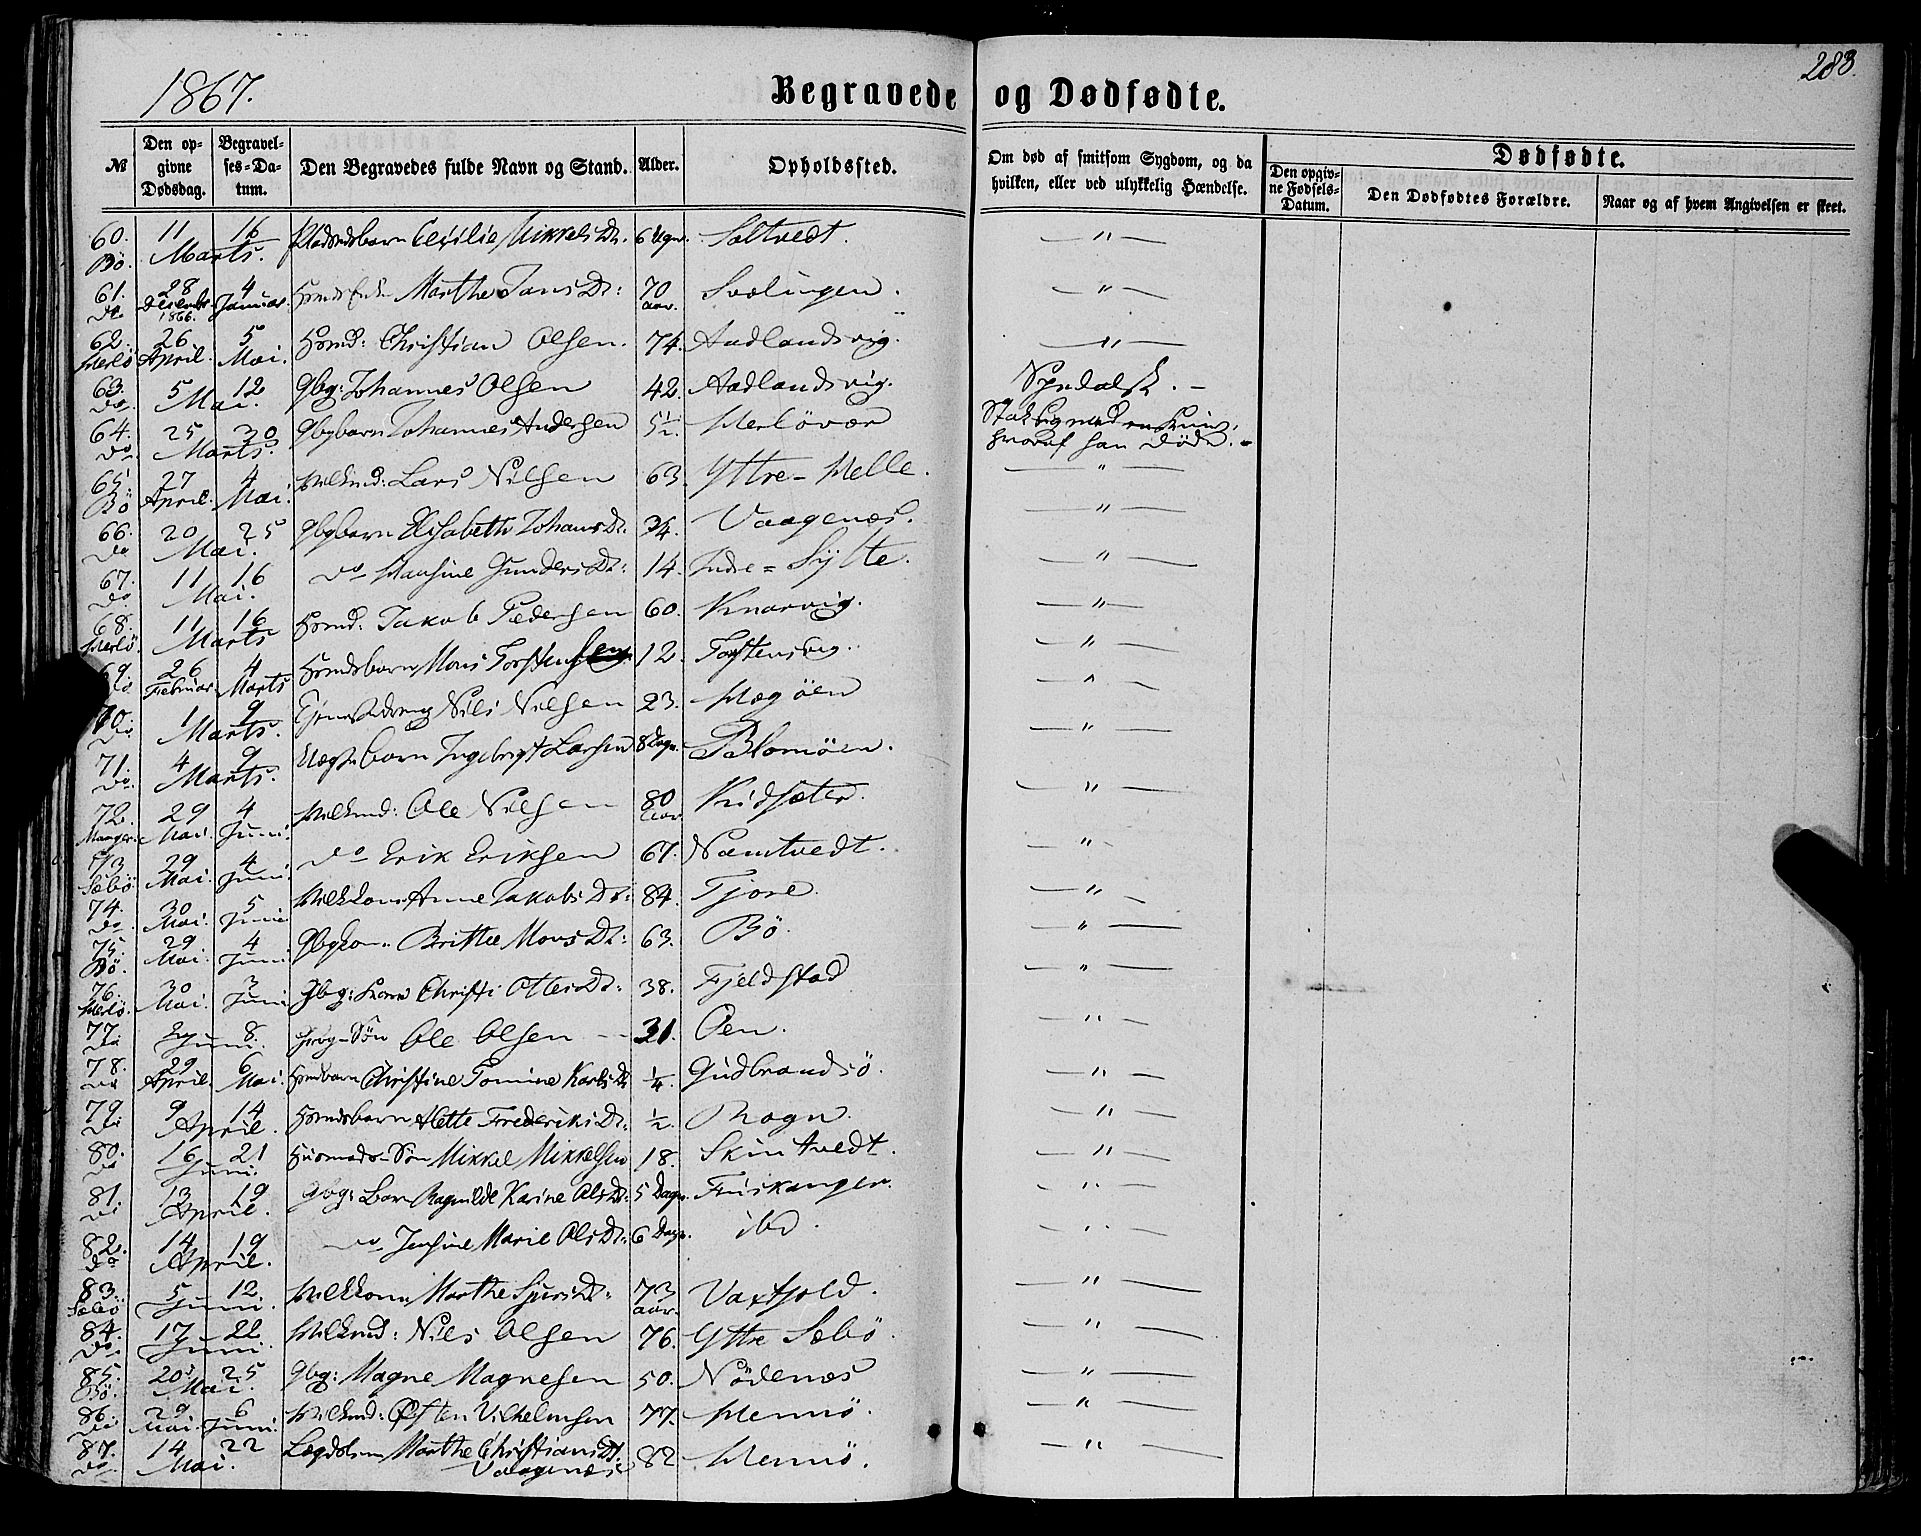 1867.
Begravede og Dødfødte.
283.
№
Den opgivne Dødsdag.
Begravelses-Datum.
Den Begravedes fulde Navn og Stand.
Alder.
Opholdssted.
Om død af smitsom Sygdom, og da hvilken, eller ved ulykkelig Hændelse.
Dødfødte.
Den opgivne Fødsels-Datum.
Den Dødfødtes Forældre.
Naar og af hvem Angivelsen er skeet.
60. Bö. 11 16 Marts. Cecilie Mikkelsdr. 6 Soltvedt. — " —
61. Do 28 Decembr 1866. 4 Januar. Marthe Jansdr: 70 Aar. Sælingen. — " —
62. Herlö 26 April. 5 Mai. Huusmd: Christian Olsen. 74. Aadlandsvig. — " —
63. Do. 5 12 Mai. Gbg: Johannes Olsen 42. Aadlandsvig. Spedalsk. —
64. Do 25 30 Marts. Gbgbarn Johannes Andersen 5½. Herlövær Stak sig med en Kniv, hvoraf han døde. —
65. Bö 27 April. 4 Mai. Vilkmd: Lars Nilsen 63. Yttre-Helle. — " —
66. Do 20 25 Mai. Gbgbarn Elisabeth Johansdr. Vaagenæs. — " —
67. Do 11 16 Mai. Do Gundersdr: 14. Indre = Sylte. — " —
68. Herlö 11 16 Marts Huusmd: Jakob Pedersen 60. Knarvig. — " —
69. Do 26 Februar 4 Marts Huusmdsbarn Mons Torstensen 12. Torstensvig. — " —
70. Do 1 9 Marts. Tjenestedreng Nils Nilsen 23. Hægöen — " —
71. Do. 4 9 Marts. Uægte barn Ingebrigt Larsen 8 Dage. Blomöen. — " —
72. Manger. 29 Mai. 4 Juni. Vilkmd: Ole Nilsen 80 Aar Kidsæter. — " —
73 Sæbö 29 Mai. 4 Juni. Do Erik Eriksen 67. Namtvedt. — " —
74. Do 30 Mai. 5 Juni Vilkkone Anne Jakobsdr: 84. Tjore. — " —
75. Bö. 29 Mai. 4 Juni. Gbgkone: Britha Monsdr: 63. Bö. — " —
76. Herlö. 30 Mai. 3 Juni Gbg: Kone Christi Ottersdr: 38. Fjeldstad — " —
77. Do 2 8. Juni. Ole Olsen — 31. Öen. — " —
78. Do 29 April. 6 Mai. Huusmdbarn Christine Tomine Karlsdr ¼. Gudbrandsö. — " —
79. Do 9 14 April. Huusmdsbarn Mette Frederiksdr: ½. Rogn. — " —
80. Do 16 21 Juni. Huusmands-Sön Mikkel Mikkelsen 18. Skintvedt. — " —
81. Do 13 19 April. Gbg: Barn Ragnilde Karine Olsdr: 5 Dage. Friskangen. — " —
82. Do 14 19 April. Do Jensine Marie Olsdr: 6 Dage. ibd. — " —
83. Sæbö 5 12. Juni. Vilkkone Marthe Sjursdr: 73 Aar. Vaxtfold. — " —
84. Do 17 22 Juni. Vilkmd: Nils Olsen 76. Yttre Sæbö. — " —
85. Bö. 20 25 Mai. Gbg: Magne Magnesen 50. Nödenæs — " —
86. Do 29 Mai. 6 Juni. Vilkmd: Östen Vilhelmsen 77. Hennö. — " —
87. Do 14 22 Mai. Lægdslem Marthe Christiansdr. Vaagenæs 82 Hennö. — " —